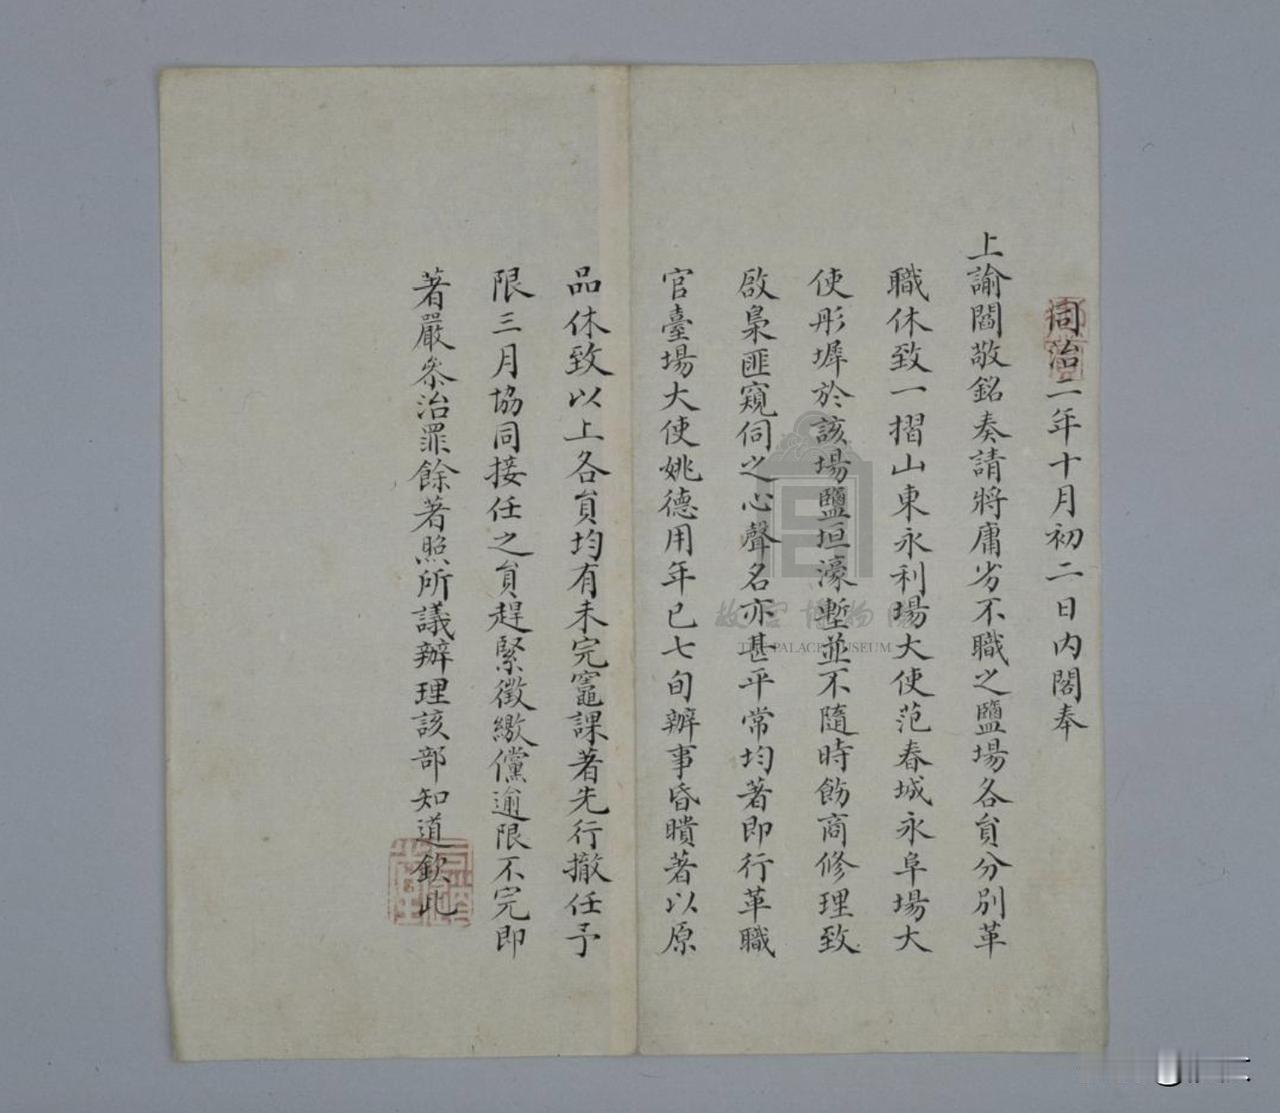 同治二年十月初二日內閣奉
上諭閻敬銘奏請將庸劣不職之鹽場各員分別革
職休致一摺山東永利場大使范春城永阜場大
使彤墀於該場鹽垣濠塹並不隨時飭商修理致
啟梟匪窺伺之心聲名亦甚平常均著即行革職
官臺場大使姚德用年已七旬辦事昏瞶著以原
品休致以上各員均有未完竈課著先行撤任予
限三月協同接任之員趕緊徵繳儻逾限不完即
著嚴叅治罪餘著照所議辦理該部知道欽此
故宮博物院
THE PALACE MUSEUM